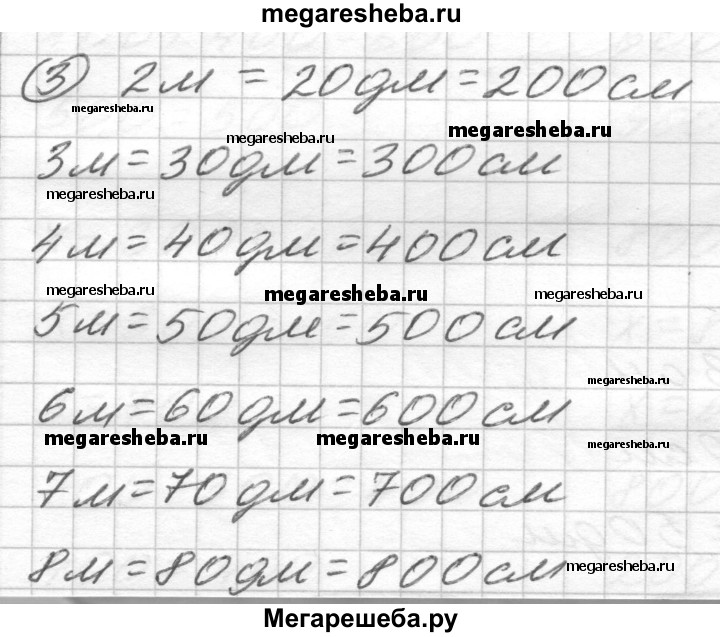 megaresheba.ru
3 2м = 20дм = 200см
megaresheba.ru
megaresheba.ru megaresheba.ru
3м = 30дм = 300см
megaresheba.ru
4м = 40дм = 400см
megaresheba.ru megaresheba.ru megaresheba.ru
5м = 50дм = 500см
megaresheba.ru
6м = 60дм = 600см
megaresheba.ru megaresheba.ru megaresheba.ru
7м = 70дм = 700см
8м = 80дм = 800см megaresheba.ru
Мегарешеба.ру